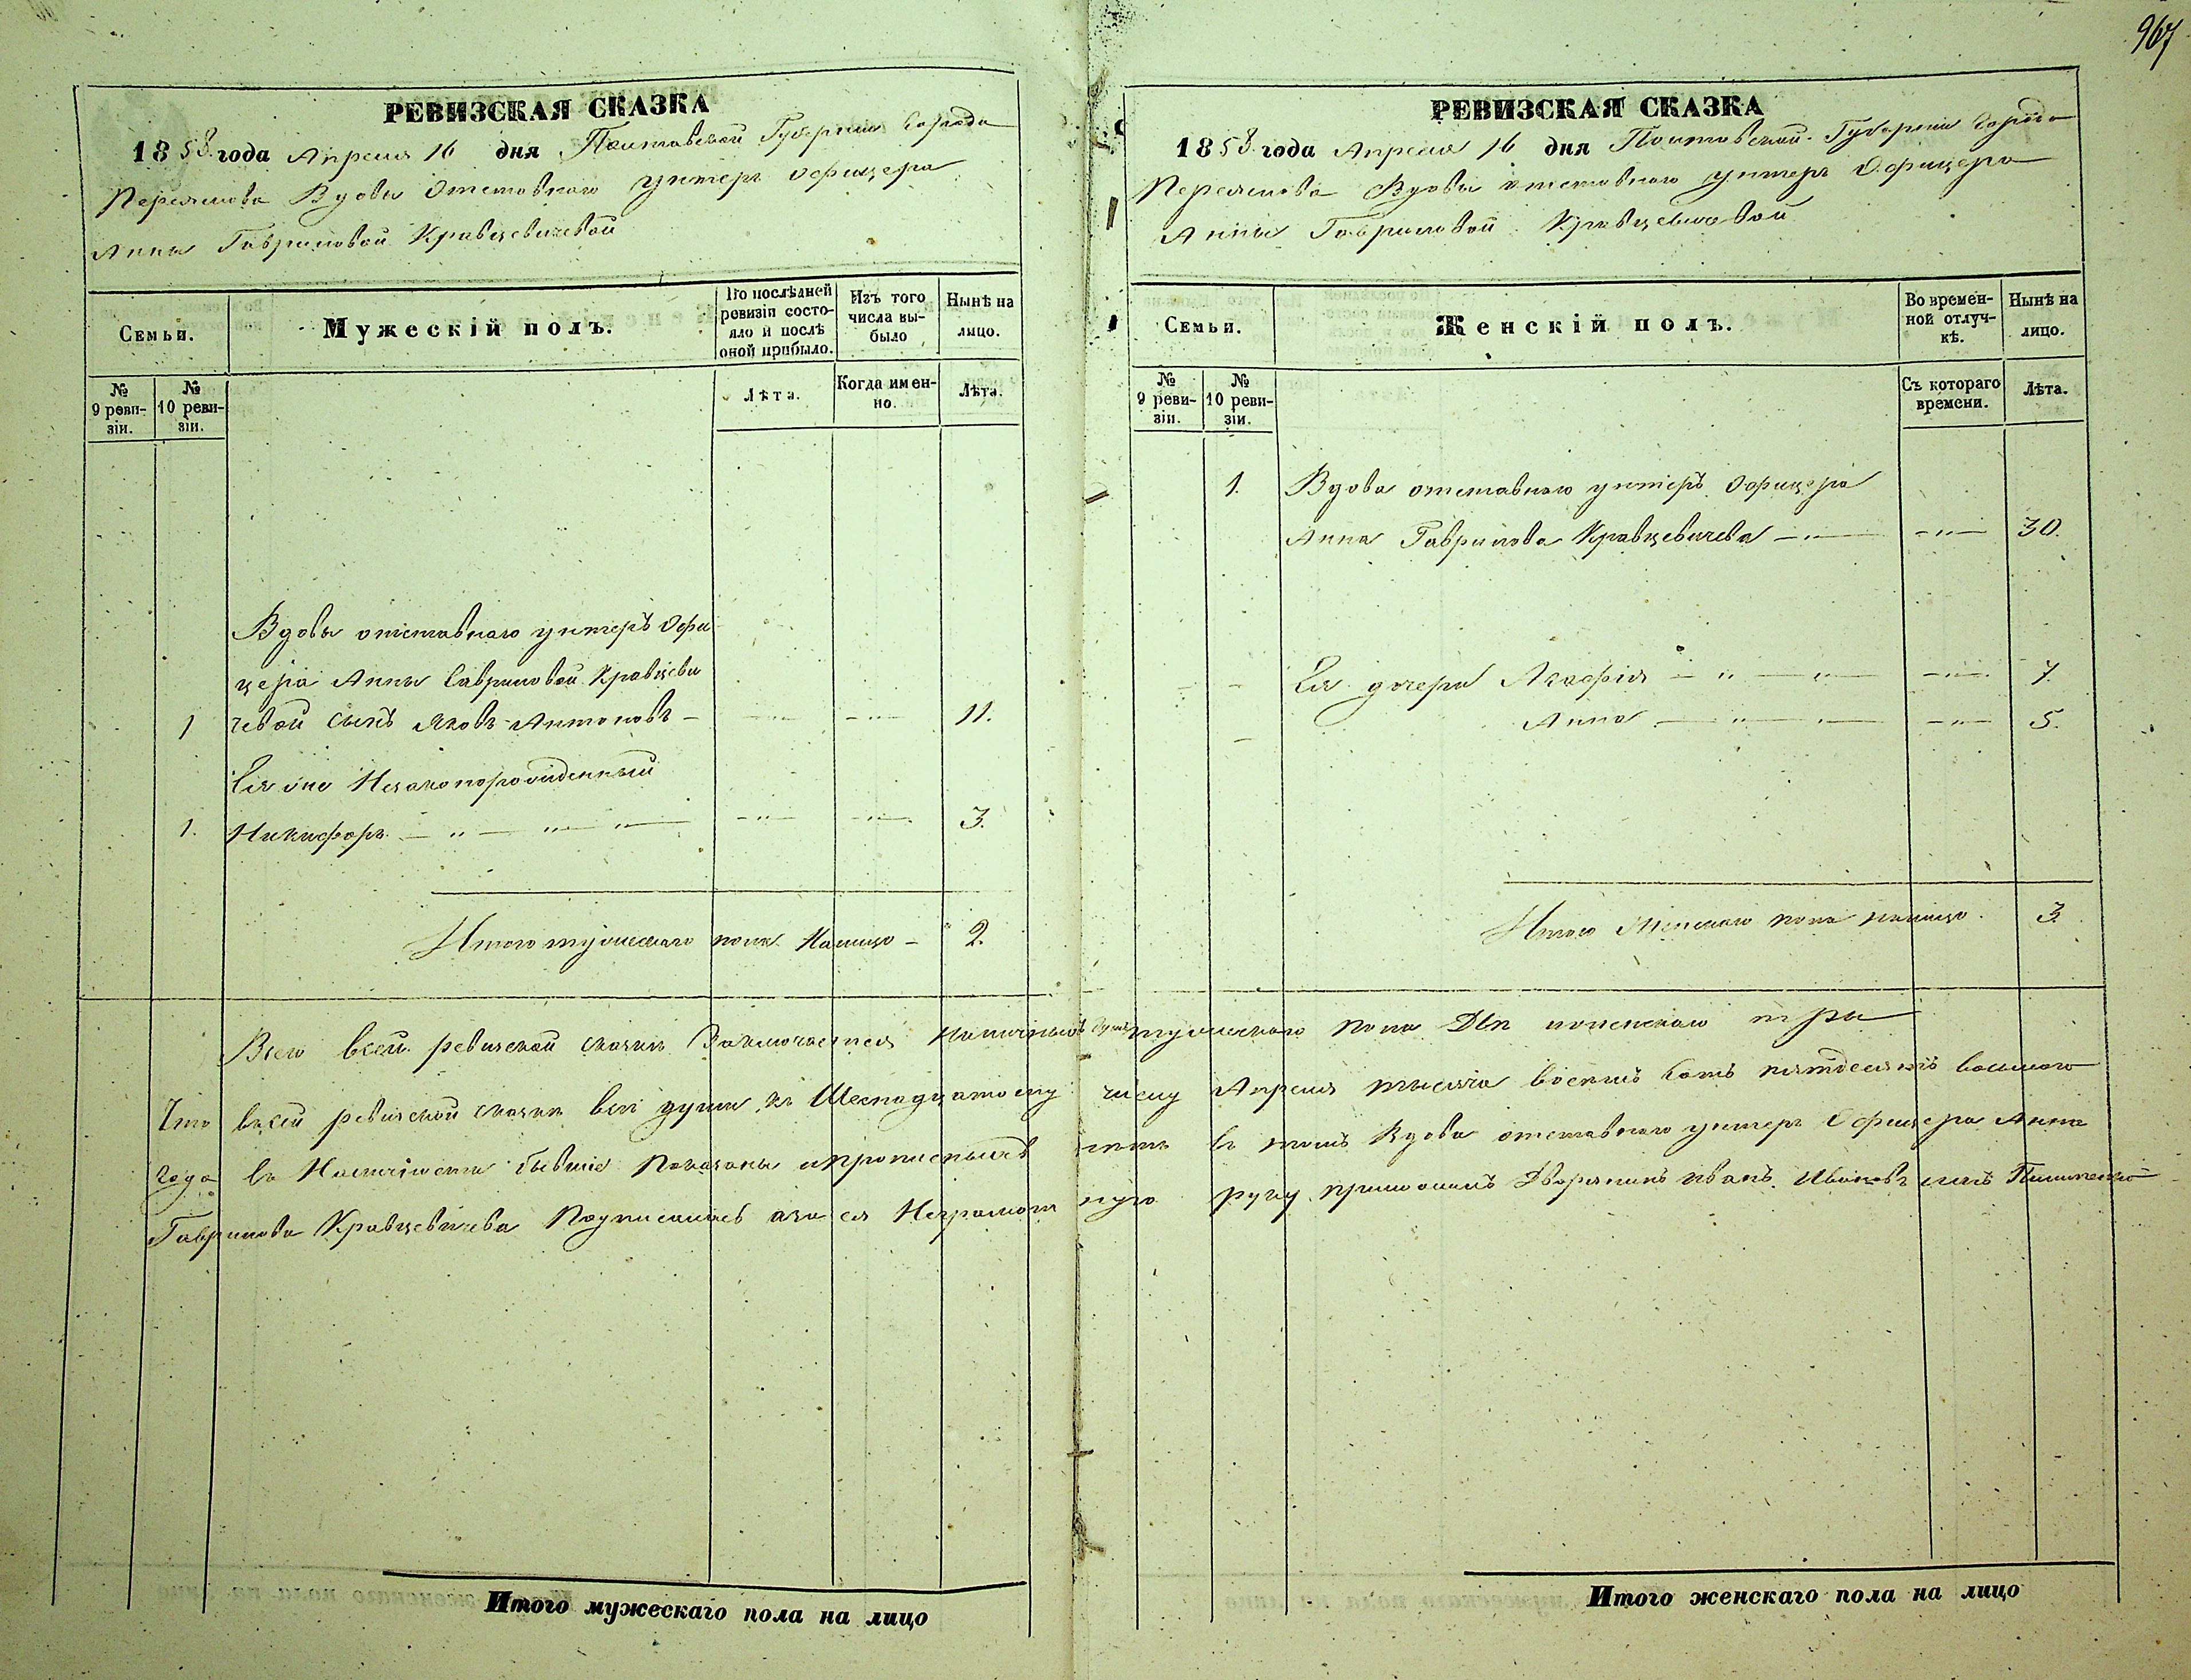 967
РЕВИЗСКАЯ СКАЗКА
1858 года Апреля 16 дня Полтавской Губерніи Города
Переяслова Вдовы Отставнаго унтеръ офицера
Анны Гавриловой Кравцевичевой
Семьи.
Мужескій полъ.
По послѣдней ревизіи состояло и послѣ оной прибыло.
Изъ того числа выбыло
Нынѣ на лицо.
№ 9 ревизіи.
№ 10 ревизіи.
Лѣта.
Когда именно.
Лѣта.
Вдовы отставнаго унтеръ офи
цера Анны Гавриловой Кравцеви
1 чевой сынъ Яковъ Антоновъ 11.
Ея же Незаконорожденный
1. Никифоръ 3.
Итого мужескаго пола Налицо - 2.
РЕВИЗСКАЯ СКАЗКА
1858 года Апреля 16 дня Полтавской Губерніи Города
Переяслова Вдовы отставнаго унтеръ Офицера
Анны Гавриловой Кравцевичевой
Семьи.
Женскій полъ.
Во временной отлучкѣ.
Нынѣ на лицо.
№ 9 ревизіи.
№ 10 ревизіи.
Съ котораго времени.
Лѣта.
1. Вдова отставнаго унтеръ Офицера
Анна Гаврилова Кравцевичева 30.
Ея дочери Агафія 7.
Анна 5.
Итого Женскаго пола налицо. 3.
Всего всей ревизской сказки Заключается Наличныхъ душъ мужескаго пола Две и женскаго три
Что в сей ревизской сказки все души, къ Шеснадцатому числу Апреля тысяча восемь сотъ пятдесятъ восьмого
года въ Наличности бывшіе Показаны и прописныхъ нетъ въ томъ Вдова отставнаго унтеръ Офицера Анна
Гаврилова Кравцевичева Подписалась а за ея Неграмотную руку приложилъ Дворянинъ Иванъ Ивановъ сынъ
Итого мужескаго пола на лицо
Итого женскаго пола на лицо